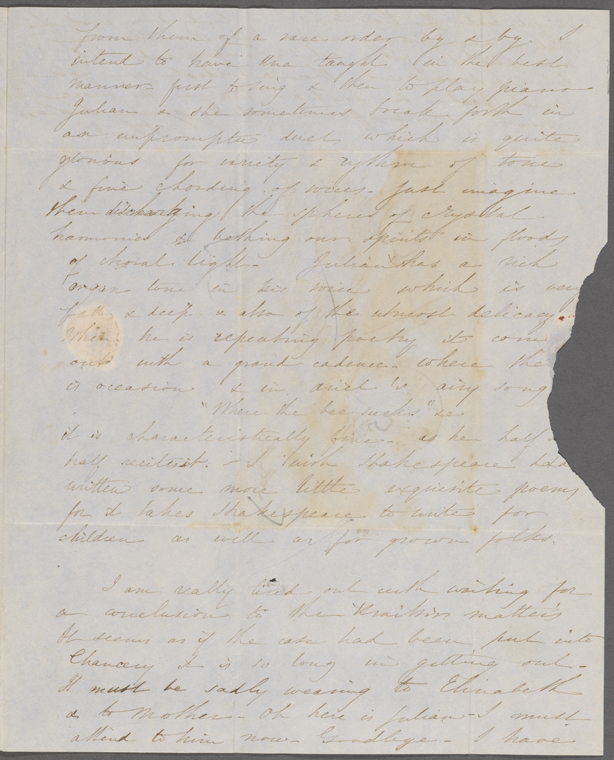 from them of a rare order by & by. I
intend to have Una taught in the best
manner first to sing & then to play piano
Julian & she sometimes break forth in
an impromptu duet, which is quite
glorious for variety & rythm of tone
& fine chording of voices. Just imagine
them discharging the spheres of crystal
harmonies & bathing our spirits in floods
of choral light. Julian has a rich
organ tone in his voice which is very
& deep & also of the utmost delicacy.
When he is repeating poetry it comes
out with a grand cadence where there
is occasion & in ariel's airy song
"Where the bee sucks" &c
it is characteristically fine. as he half
half recites it. I wish Shakespeare had
written some more little exquisite poems
for it takes Shakespeare to write for
children as well as for grown folks.
I am really tired out with waiting for
a conclusion to the Kraitsir matters
It seems as if the case had been put into
Chancery it is so long in getting out.
It must be sadly wearing to Elizabeth
& to Mother. Oh here is Julian I must
attend to him now. Goodbye. I have